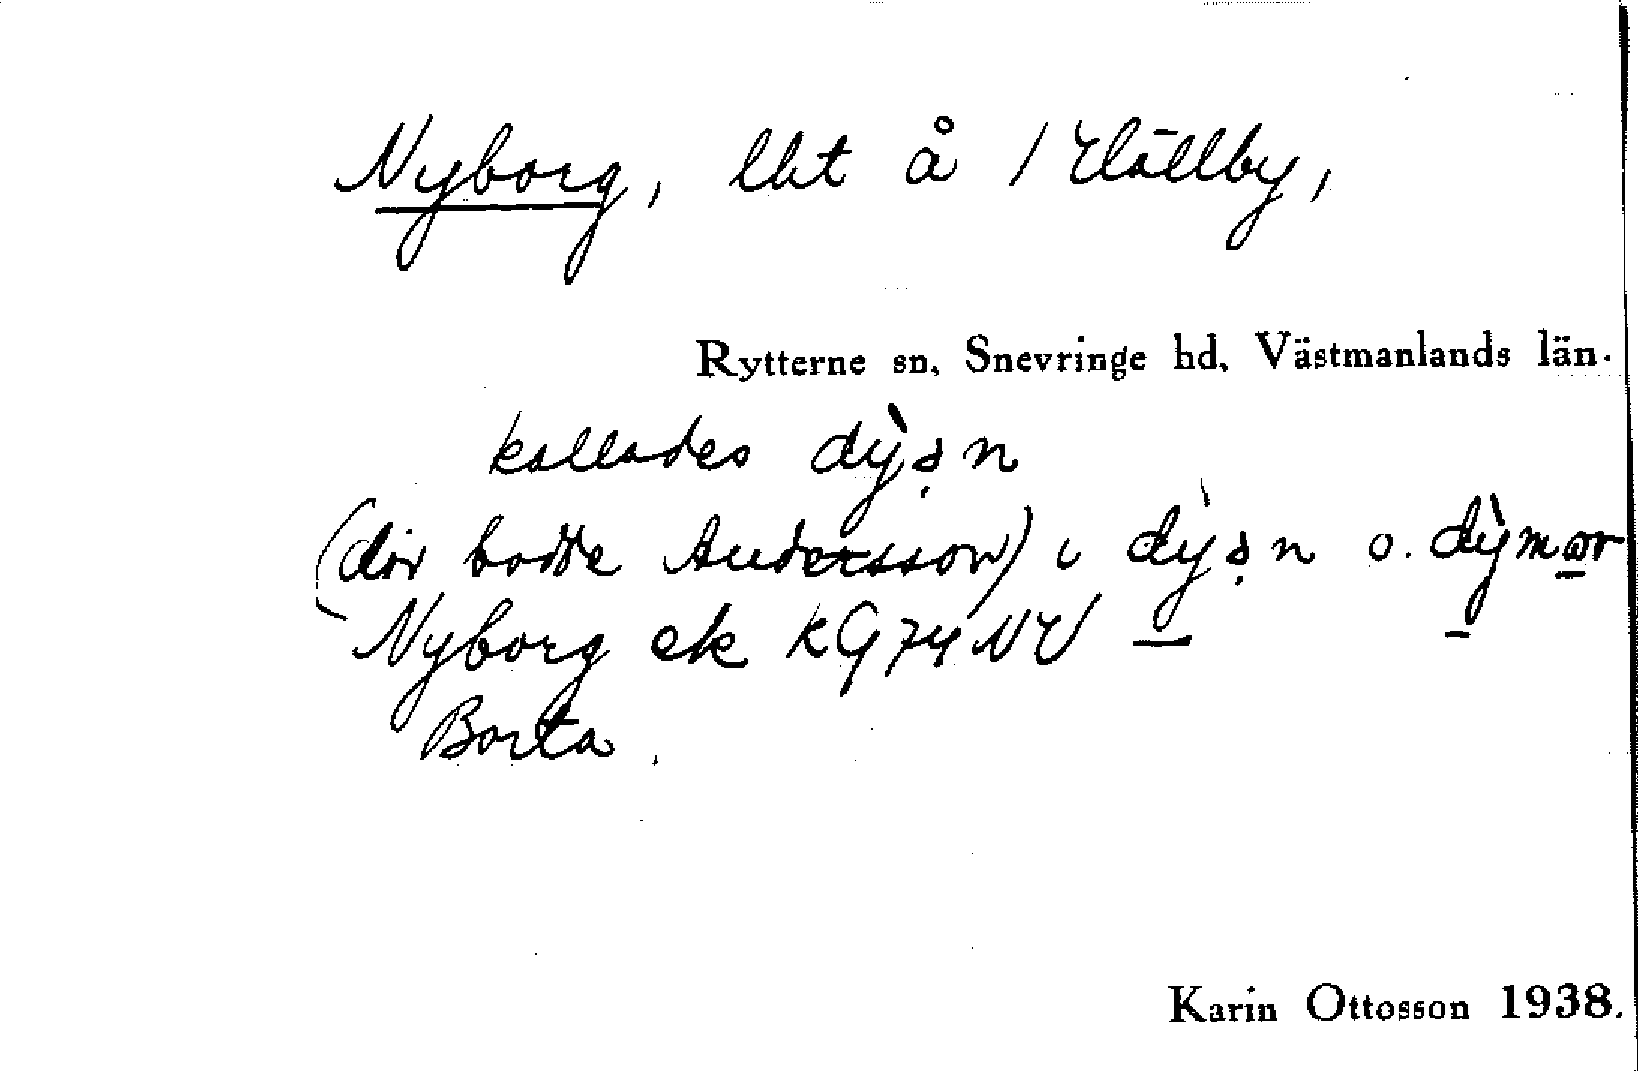 Nyborg, lht å / Hällby,
Rytterne sn, Snevringe hd, Västmanlands län.
kallades dỳən
(där bodde Andersson) i dỳən o. dỳmər
Nyborg ek kG 74 NV
Borta.
Karin Ottosson 1938.